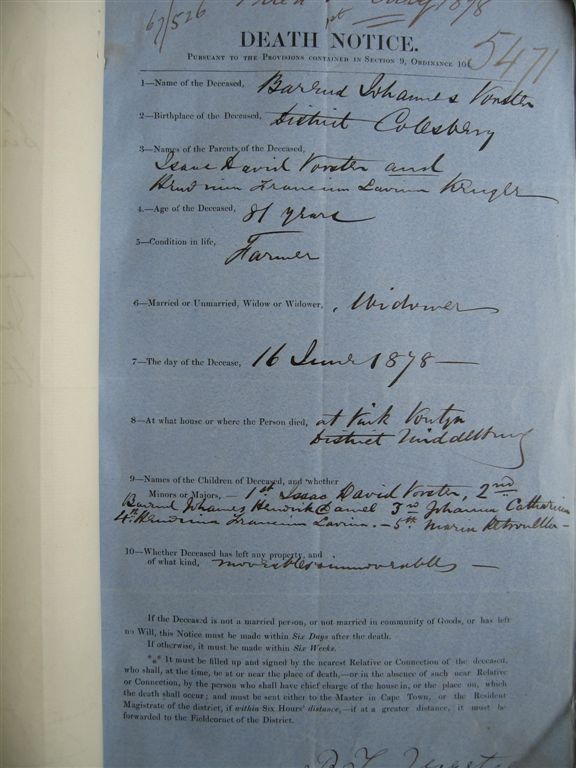 67/526 1878
DEATH NOTICE. 5471
PURSUANT TO THE PROVISIONS CONTAINED IN SECTION 9, ORDINANCE 10
1—Name of the Deceased, Barend Johannes Vorster
2—Birthplace of the Deceased, District Colesberg
3—Names of the Parents of the Deceased,
Isaac David Vorster and
Hendrina Francina Lavina Kruger
4.—Age of the Deceased, 81 years
5—Condition in life,
Farmer
6—Married or Unmarried, Widow or Widower, Widower
7—The day of the Decease, 16 June 1878—
8—At what house or where the Person died, at Vink Fontyn
District Middelburg
9—Names of the Children of Deceased, and whether
Minors or Majors,— 1st Isaac David Vorster, 2nd
Barend Johannes Hendrik Daniel 3rd Johanna Catharina
4th Hendrina Francina Lavina.—5th Maria Petronella—
10—Whether Deceased has left any property, and
of what kind, moveables immoveables—
If the Deceased is not a married person, or not married in community of Goods, or has left
no Will, this Notice must be made within Six Days after the death.
If otherwise, it must be made within Six Weeks.
*** It must be filled up and signed by the nearest Relative or Connection of the deceased,
who shall, at the time, be at or near the place of death,—or in the absence of such near Relative
or Connection, by the person who shall have chief charge of the house in, or the place on, which
the death shall occur; and must be sent either to the Master in Cape Town, or the Resident
Magistrate of the district, if within Six Hours' distance,—if at a greater distance, it must be
forwarded to the Fieldcornet of the District.